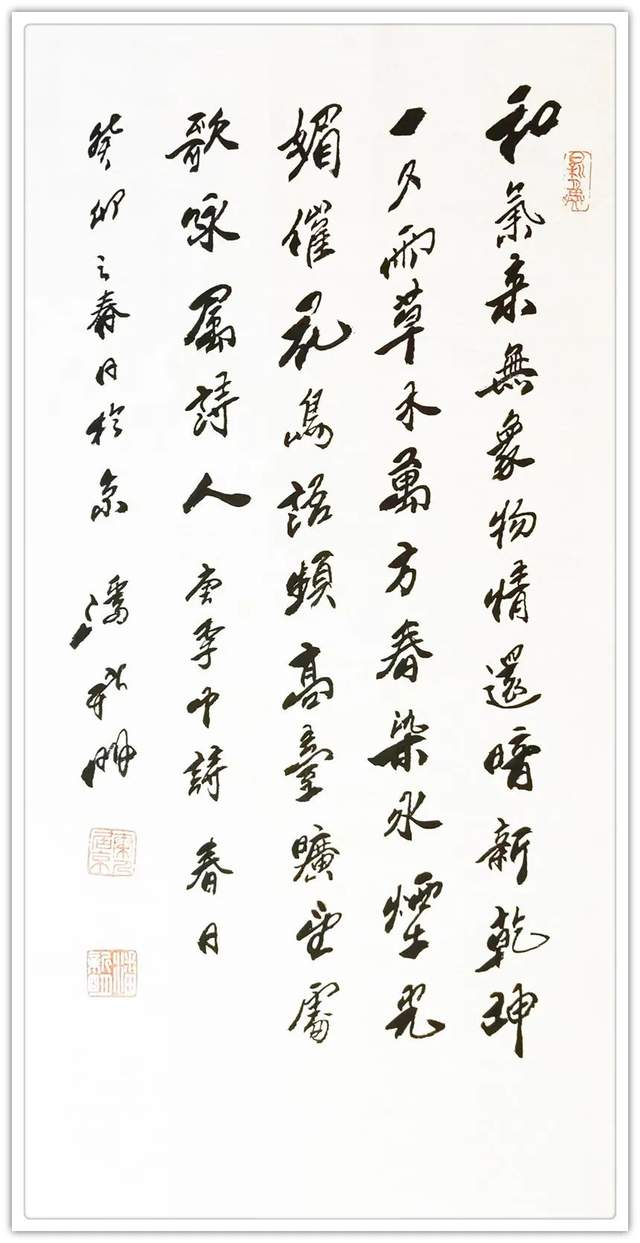 和氣来無象物情還暗新乾坤
一夕雨草木萬方春染水煙光
媚催花鳥語頻高臺曠望處
歌咏屬詩人 唐李中詩 春日
癸卯之春月於京 潘新明